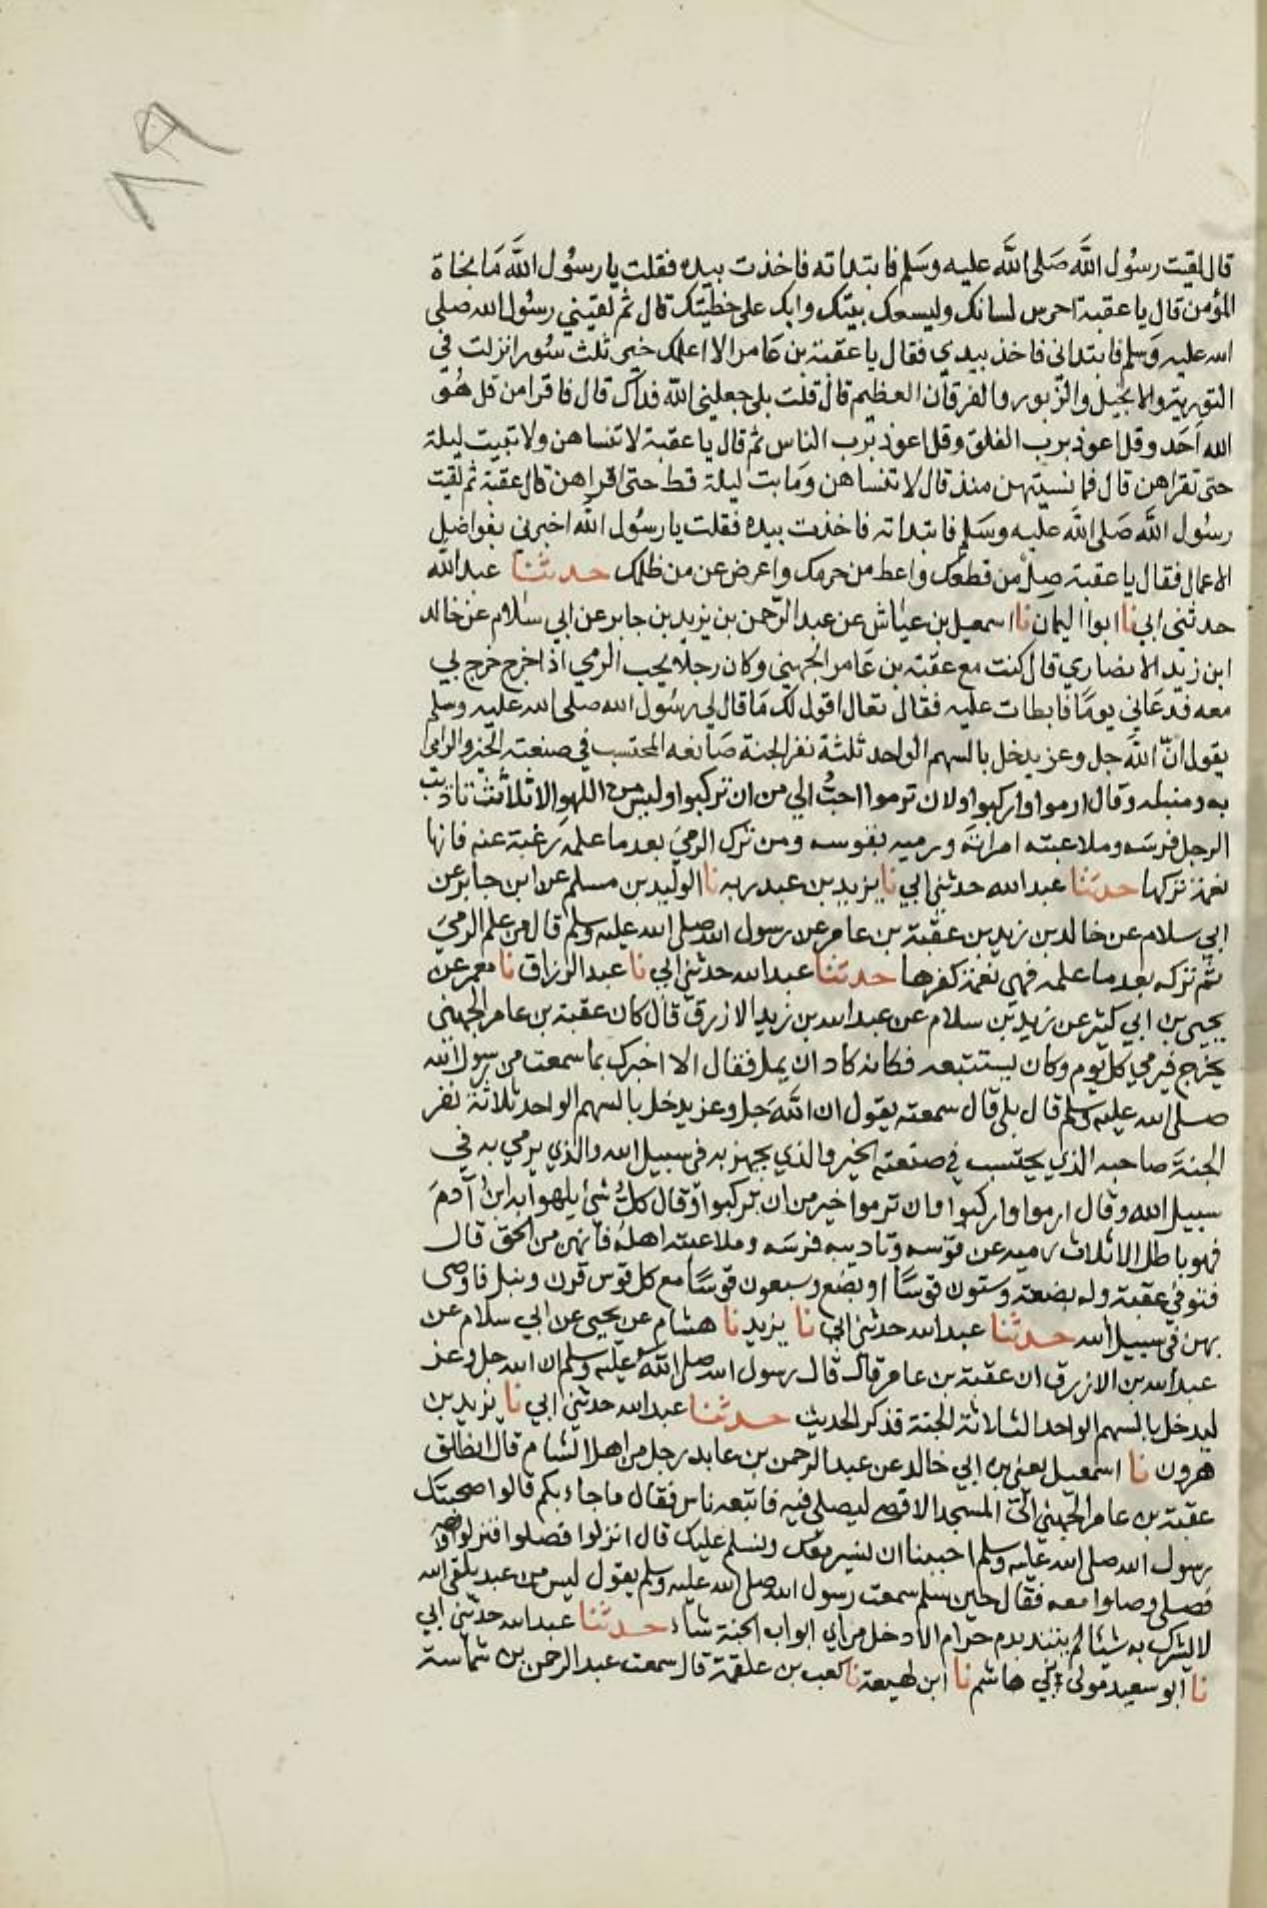 ٨٩
قال لقيت رسُول اللَّه صَلى اللَّه عليه وسَلم فابتداته فاخذت بيده فقلت يا رسوُل اللَّه مَا نجاة
المؤمن قال يا عقبة احرس لسانك وليسعك بيتك وابك على خطيتك قال ثم لقيني رسُول الله صلى
الله عليه وَسلم فابتداني فاخذ بيدي فقال يا عقبة بن عَامر الا اعلمك خير ثلث سُور انزلت في
التورية والانجيل والزّبور والفرقان العظيم قال قلت بلى جعلني اللّه فداك قال فاقرا من قل هُو
الله اَحَد وقل اعوذ برب الفلق وقل اعوذ برب الناس ثم قال يا عقبة لا تنساهن ولا تبيت ليلة
حتى تقراهن قال فما نسيتهن منذ قال لا تنساهن وَما بت ليلة قط حتى اقراهن قال عقبة ثم لقيت
رسُول اللَّه صَلى اللَّه عليه وسَلم فابتداته فاخذت بيده فقلت يا رسُول اللَّه اخبرني بفواضل
الاعمال فقال يا عقبة صِلْ من قطعك واعط من حرمك واعرض عن من ظلمك حدثنا عبد اللّه
حدثنى ابي نا ابوا اليمان نا اسمعيل بن عيّاش عن عبد الرّحمن بن يزيد بن جابر عن ابي سلام عن خالد
ابن زيد الانصاري قال كنت مع عقبة بن عَامر الجهني وكان رجلا يحب الرمي اذا خرج خرج بي
معه فدعَاني يومًا فابطات عليه فقال تعال اقول لك مَا قال لي رسُول الله صلى الله عليه وسلم
يقول انّ اللّه جل وعز يدخل بالسهم الواحد ثلثة نفر الجنة صَانعه المحتسب في صنعته الخير والرامي
به ومنبله وقال ارموا واركبوا ولان ترموا احبُّ الي من ان تركبوا وليس من اللهو الا ثلاث تاديب
الرجل فرسَه وملاعبته امراته ورميه بقوسه ومن ترك الرميَ بعد ما علمه رغبة عنه فانها
نعمة تركها حدثنا عبد الله حدثني ابي نا يزيد بن عبد ربه نا الوليد بن مسلم عن ابن جابر عن
ابي سلام عن خالد بن زيد بن عقبة بن عامر عن رسول الله صلى الله عليه وسلم قال من علم الرميَ
ثم تركه بعد ما علمه فهي نعمة كفرها حدثنا عبد الله حدثني ابي نا عبد الرزاق نا معمر عن
يحيى بن ابي كثير عن زيد بن سلام عن عبد الله بن زيد الازرق قال كان عقبة بن عامر الجهني
يخرج فيرمي كل يوم وكان يستتبعه فكانه كاد ان يمل فقال الا اخبرك بما سمعت من رسول الله
صلى الله عليه وسلم قال بلى قال سمعته يقول ان اللّه جل وعز يدخل بالسهم الواحد ثلاثة نفر
الجنة صاحبه الذي يحتسب في صنعته الخير والذي يجهز به في سبيل الله والذي يرمي به في
سبيل الله وقال ارموا واركبوا وان ترموا خير من ان تركبوا وقال كلُّ شئ يلهوا به ابنُ آدمَ
فهو باطل الا ثلاث رميه عن قوسه وتاديبه فرسَه وملاعبته اهلهُ فانهن من الحق قال
فتوفي عقبة وله بضعة وستون قوسًا او بضع وسبعون قوسًا مع كل قوس قرن ونبل فاوصى
بهن في سبيل الله حدثنا عبد الله حدثني ابي نا يزيد نا هشام عن يحيى عن ابي سلام عن
عبد الله بن الازرق ان عقبة بن عامر قال قال رسول الله صلى اللّه عليه وسلم ان الله جل وعز
ليدخل بالسهم الواحد الثلاثة الجنة فذكر الحديث حدثنا عبد الله حدثني ابي نا يزيد بن
هرون نا اسمعيل يعني بن ابي خالد عن عبد الرحمن بن عابد رجل من اهل الشام قال انطلق
عقبة بن عامر الجهني الى المسجد الاقصى ليصلى فيه فاتبعه ناس فقال ما جاء بكم قالوا صحبتك
رسول الله صلى الله عليه وسلم احببنا ان نسير معك ونسلم عليك قال انزلوا فصلوا فنزلوا
فصلى وصلوا معه فقال حين سلم سمعت رسول الله صلى الله عليه وسلم يقول ليس من عبد يلقى الله
لا يشرك به شئا لم يتند بدم حرام الا دخل من اي ابواب الجنة شاء حدثنا عبد الله حدثني ابي
نا ابو سعيد مولى بني هاشم نا ابن لهيعة نا كعب بن علقمة قال سمعت عبد الرحمن بن شماسة